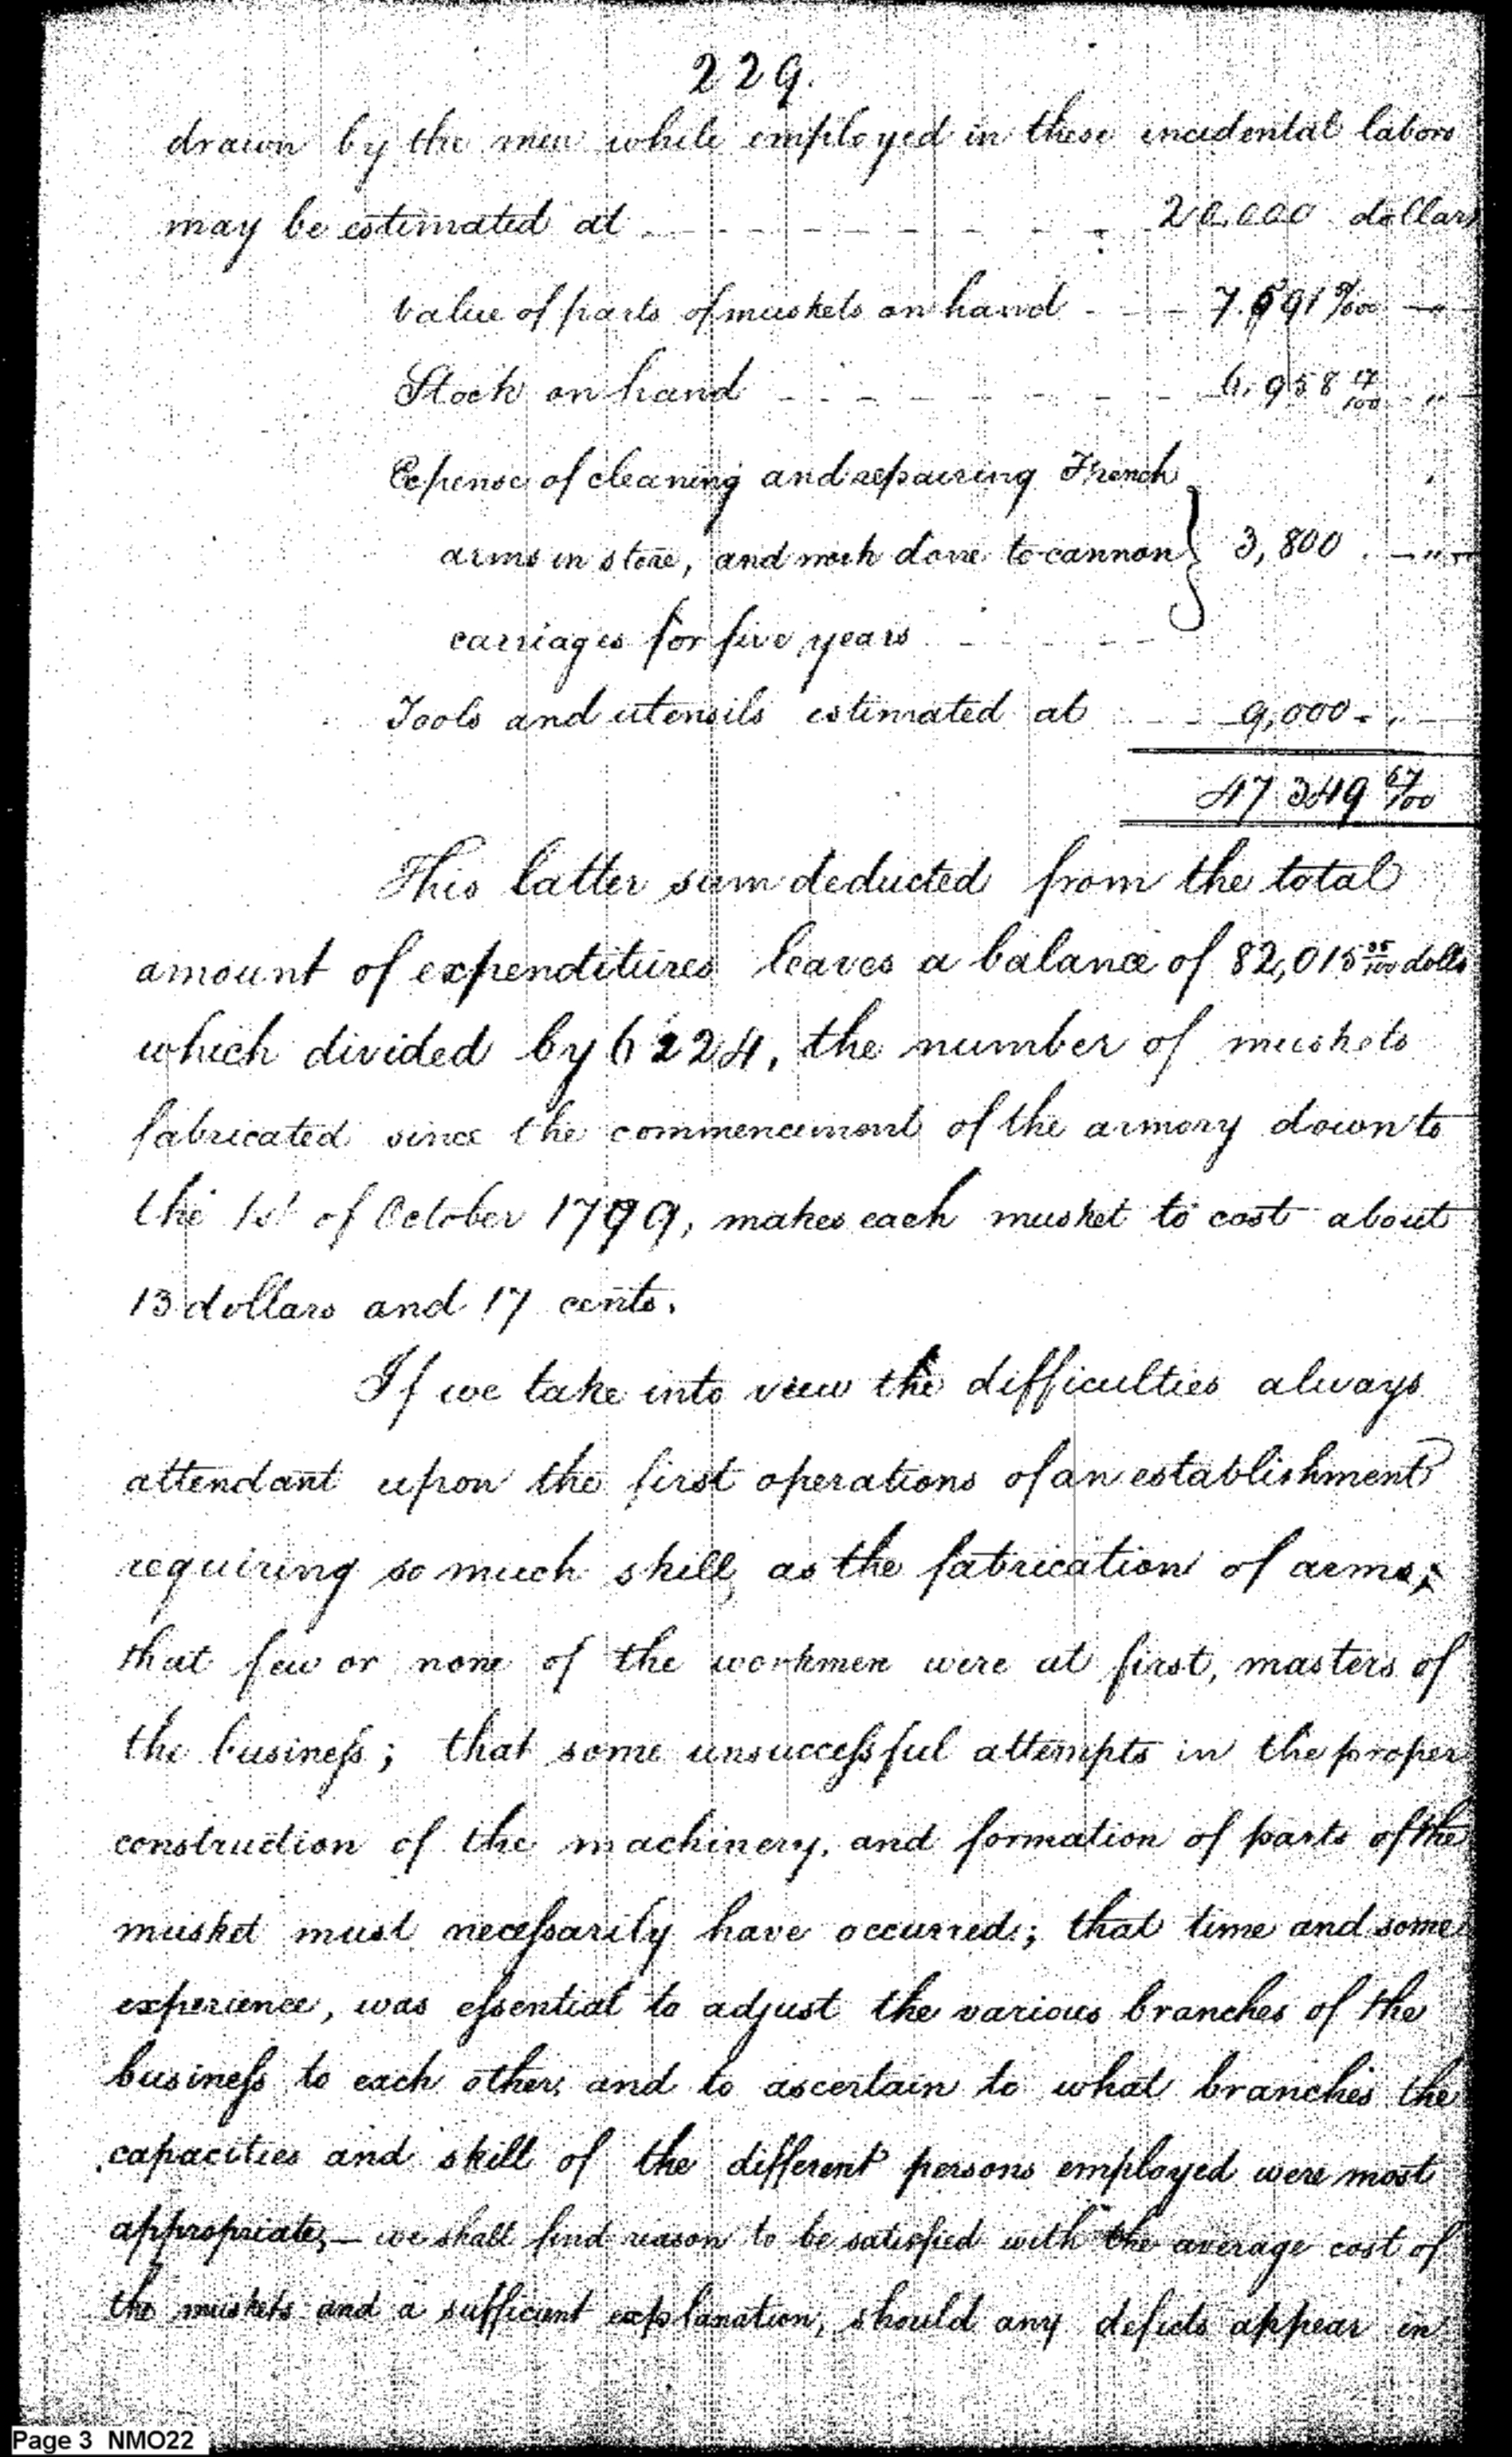 229.
drawn by the men while employed in these incidental labors
may be estimated at - - - - - - - - 20.000 dollars
Value of parts of muskets on hand - - - 7.591 9/100 — " —
Stock on hand - - - - - - - - 6,958 17/100 - " -
Expense of cleaning and repairing French
arms in store, and work done to cannon } 3,800 . — " —
carriages for five years - - - - -
Tools and utensils estimated at - - - 9,000 - " —
47 349 67/100
This latter sum deducted from the total
amount of expenditures leaves a balance of 82,015 05/100 dolls
which divided by 6224, the number of muskets
fabricated since the commencement of the armory down to
the 1st of October 1799, makes each musket to cost about
13 dollars and 17 cents.
If we take into view the difficulties always
attendant upon the first operations of an establishment
requiring so much skill, as the fabrication of arms;
that few or none of the workmen were at first, masters of
the business; that some unsuccessful attempts in the proper
construction of the machinery, and formation of parts of the
musket must necessarily have occurred; that time and some
experience, was essential to adjust the various branches of the
business to each other, and to ascertain to what branches the
capacities and skill of the different persons employed were most
appropriate, — we shall find reason to be satisfied with the average cost of
the muskets and a sufficient explanation, should any defects appear in
Page 3 NMO22